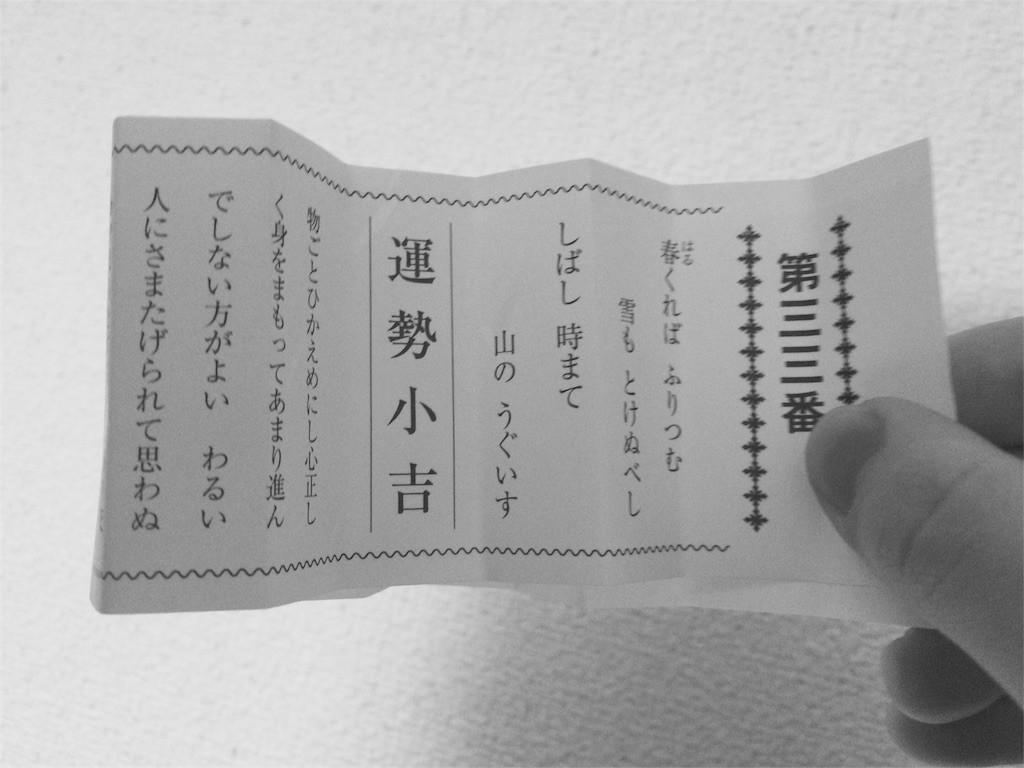 第三三番
春くれば ふりつむ
はる
雪も とけぬべし
しばし 時まて
山の うぐいす
運勢小吉
物ごとひかえめにし心正し
く身をまもってあまり進ん
でしない方がよい わるい
人にさまたげられて思わぬ